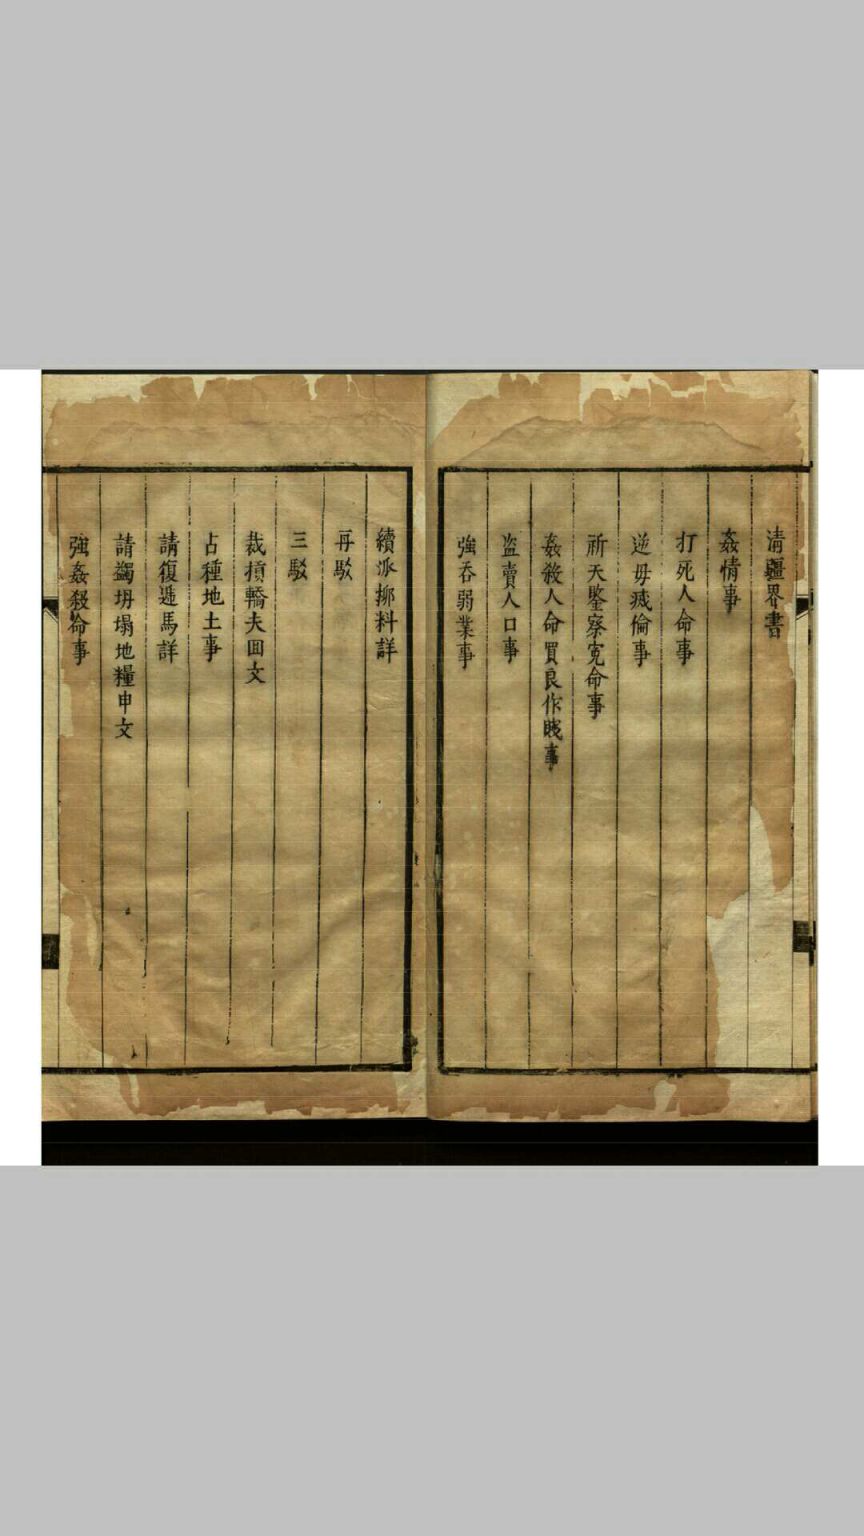 清疆界書
姦情事
打死人命事
逆母滅倫事
祈天鑒察寃命事
姦殺人命買良作賤事
盗賣人口事
強吞弱業事
續派柳料詳
再駁
三駁
裁損轎夫回文
占種地土事
請復遞馬詳
請蠲坍塌地糧申文
強姦殺命事